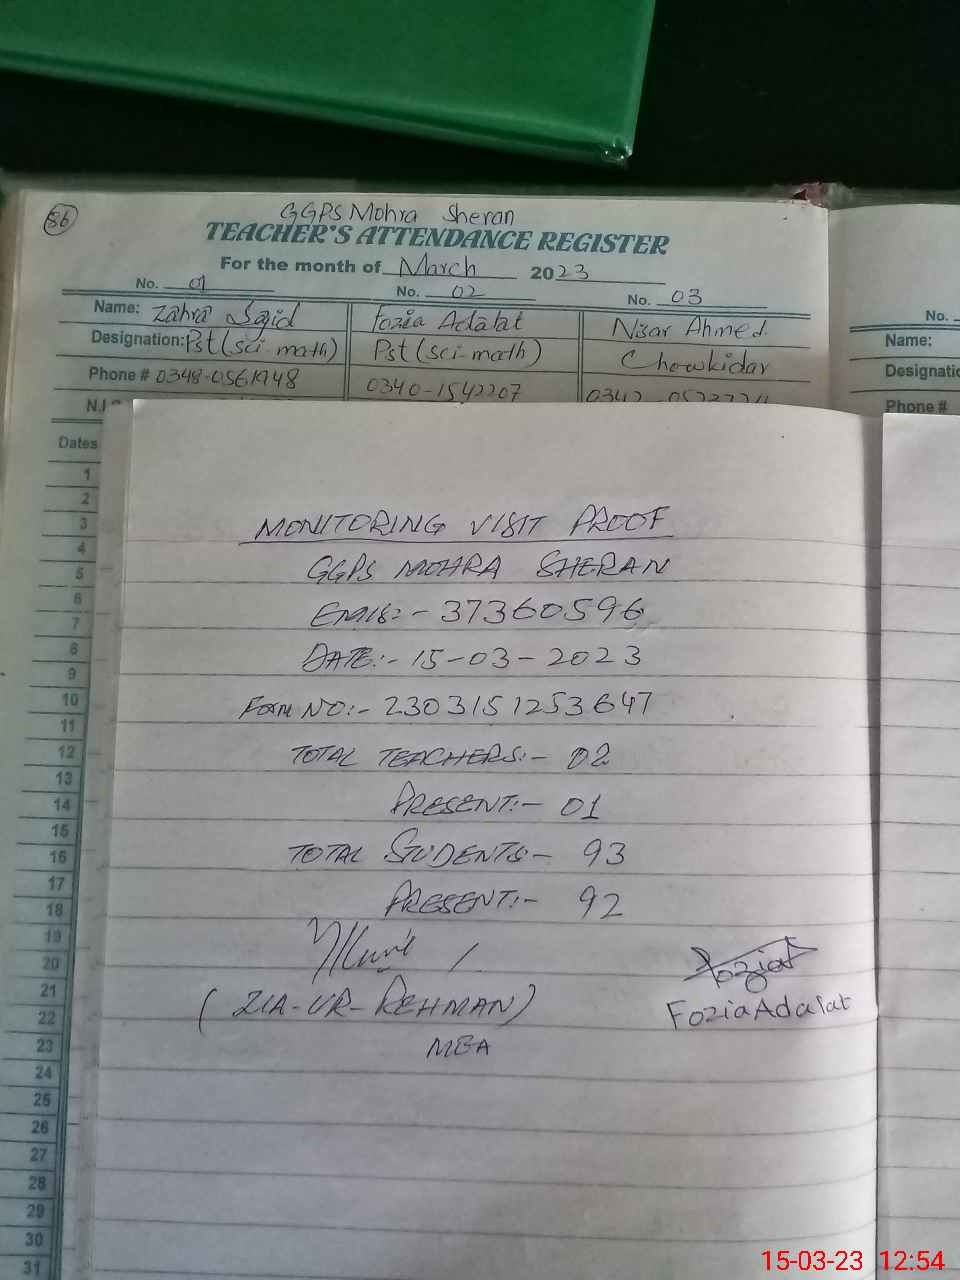 86
GGPS Mohra Sheran
TEACHER'S ATTENDANCE REGISTER
For the month of March 2023
No. 01 No. 02 No. 03 No.
Name: Zahra Sajid Fozia Adalat Nisar Ahmed Name:
Designation: Pst (sci-math) Pst (sci-math) Chowkidar
Phone # 0348-0561948 0340-1542207 Phone #
Dates
1
2
3
4
5
6
7
8
9
10
11
12
13
14
15
16
17
18
19
20
21
22
23
24
25
26
27
28
29
30
31
MONITORING VISIT PROOF
GGPS MOHRA SHERAN
EMIS:- 37360596
DATE:- 15-03-2023
Form NO:- 2303151253647
TOTAL TEACHERS:- 02
PRESENT:- 01
TOTAL STUDENTS- 93
PRESENT:- 92
(ZIA-UR-REHMAN)
MEA
Fozia
Fozia Adalat
15-03-23 12:54